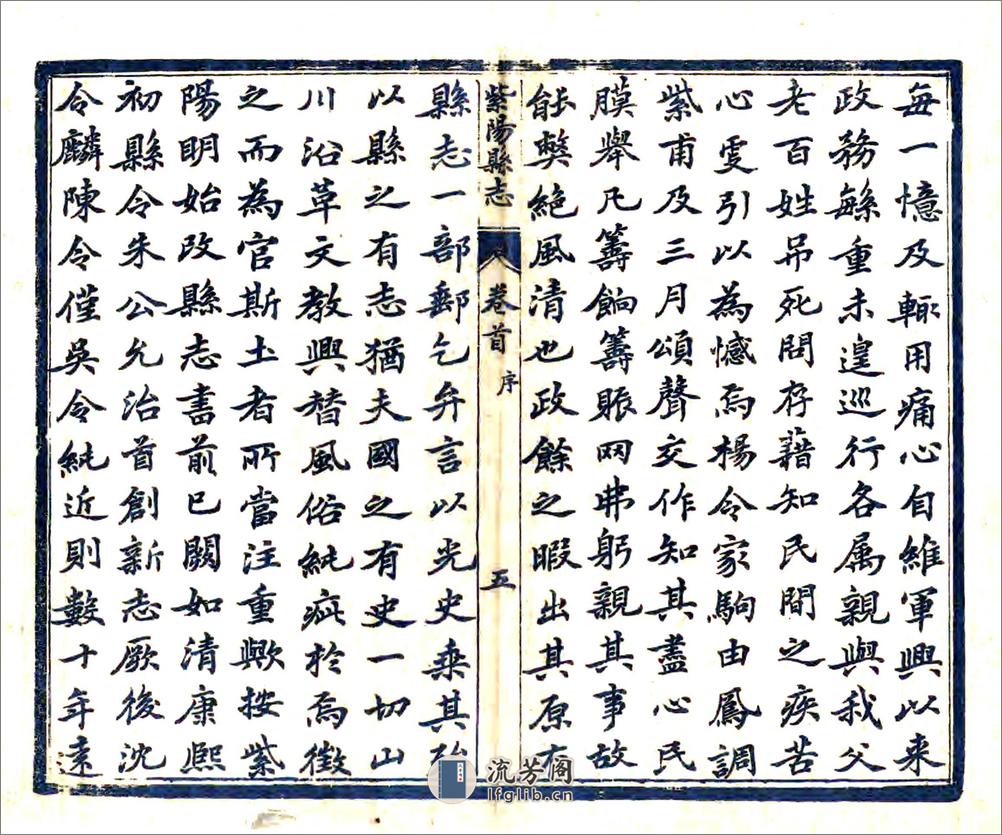 每一憶及輒用痛心自維軍興以来
政務緐重未遑巡行各属親與我父
老百姓吊死問存藉知民間之疾苦
心雯引以為憾焉楊令家駒由鳳調
紫甫及三月頌聲交作知其盡心民
膜舉凡籌餉籌賑罔弗躬親其事故
能獘絕風清也政餘之暇出其原有
紫陽縣志 卷首 序 五
縣志一部郵乞弁言以光史乗其
以縣之有志猶夫國之有史一切山
川沿草文教興替風俗純疵於焉徵
之而為官斯土者所當注重歟按紫
陽明始改縣志書前已闕如清康熙
初縣令朱公允治首創新志厥後沈
令麟陳令僅吳令純近則數十年遠
流芳阁
lfglib.cn